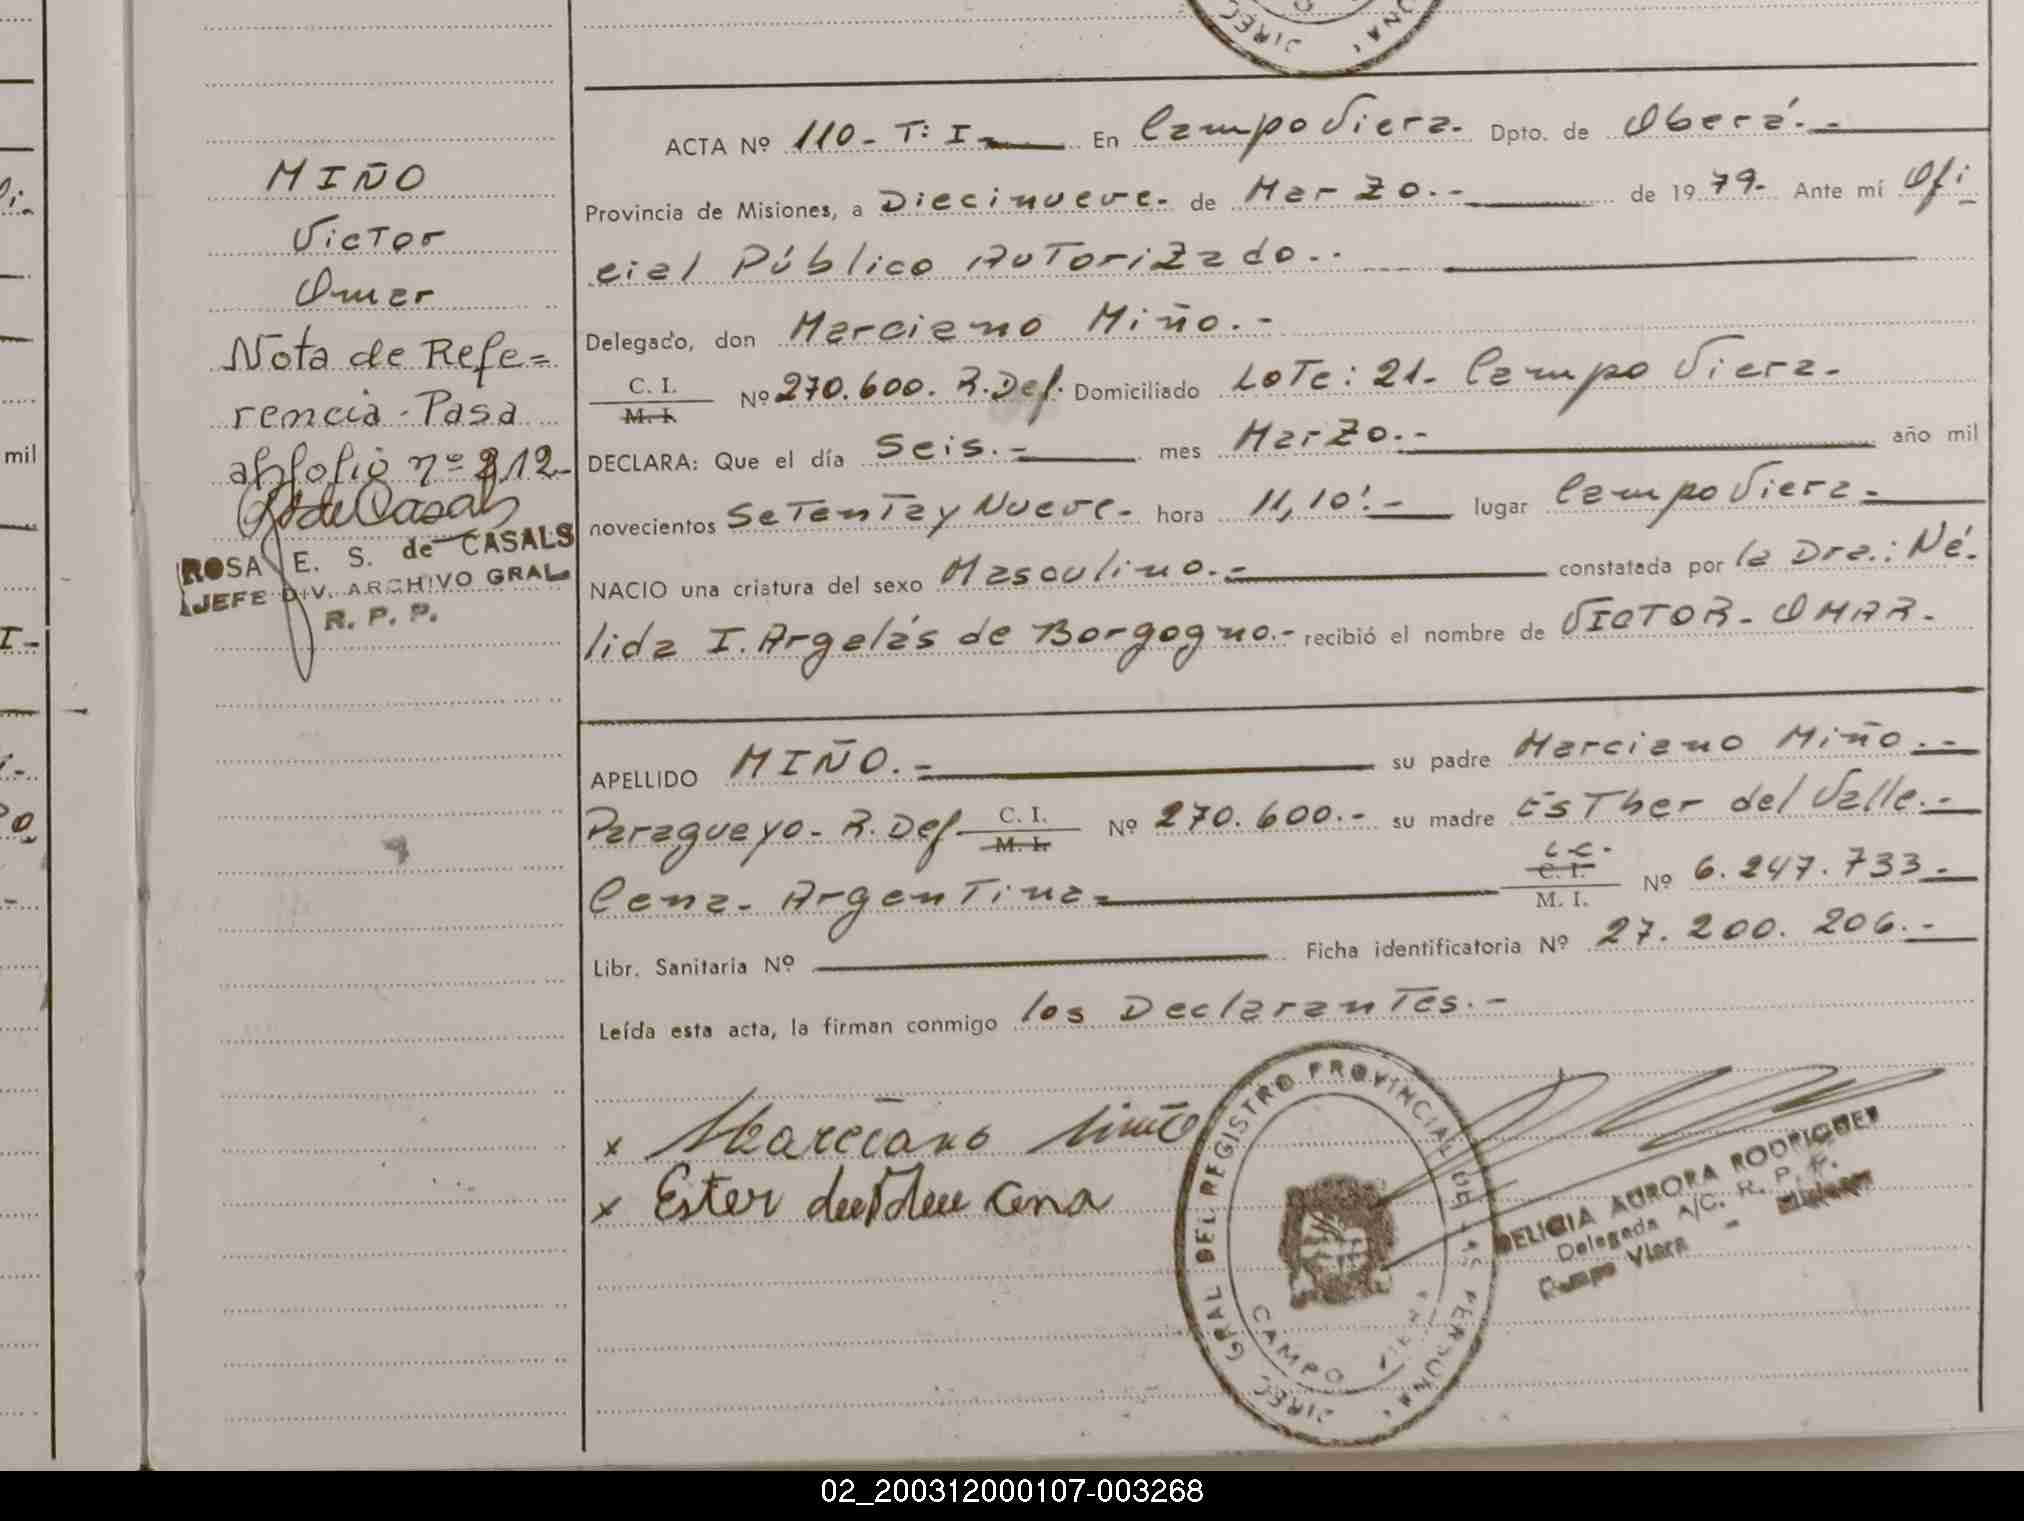 MIÑO
Victor
Omar
Nota de Refe=
rencia. Pasa
al folio nº 212-
ROSA E. S. de CASALS
JEFE DIV. ARCHIVO GRAL.
R. P. P.
mil
ACTA Nº 110- T: I- En Campo Viera.- Dpto. de Oberá.-
Provincia de Misiones, a Diecinueve.- de Marzo.- de 1979.- Ante mí Ofi
cial Público Autorizado..
Delegado, don Marciano Miño.-
C. I.
M. I. Nº 270.600. R. Def. Domiciliado Lote: 21- Campo Viera.-
DECLARA: Que el día Seis.- mes Marzo.- año mil
novecientos Setenta y Nueve.- hora 11,10'.- lugar Campo Viera.-
NACIO una criatura del sexo Masculino.- constatada por la Dra.: Né-
lida I. Argelás de Borgogno.- recibió el nombre de VICTOR- OMAR.-
APELLIDO MIÑO.- su padre Marciano Miño.-
Paraguayo- R. Def- C. I.
M. I. Nº 270.600.- su madre Esther del Valle.-
Cena- Argentina- L.C.
C. I.
M. I. Nº 6.247.733-
Libr. Sanitaria Nº Ficha identificatoria Nº 27.200.206.-
Leída esta acta, la firman conmigo los Declarantes.-
x Marciano Miño
x Ester del Valle Cena
DIREC. GRAL DEL REGISTRO PROVINCIAL DE LAS PERSONAS
CAMPO VIERA
DELICIA AURORA RODRIGUEZ
Delegada A/C. R. P. P.
Campo Viera - Misiones
02_200312000107-003268